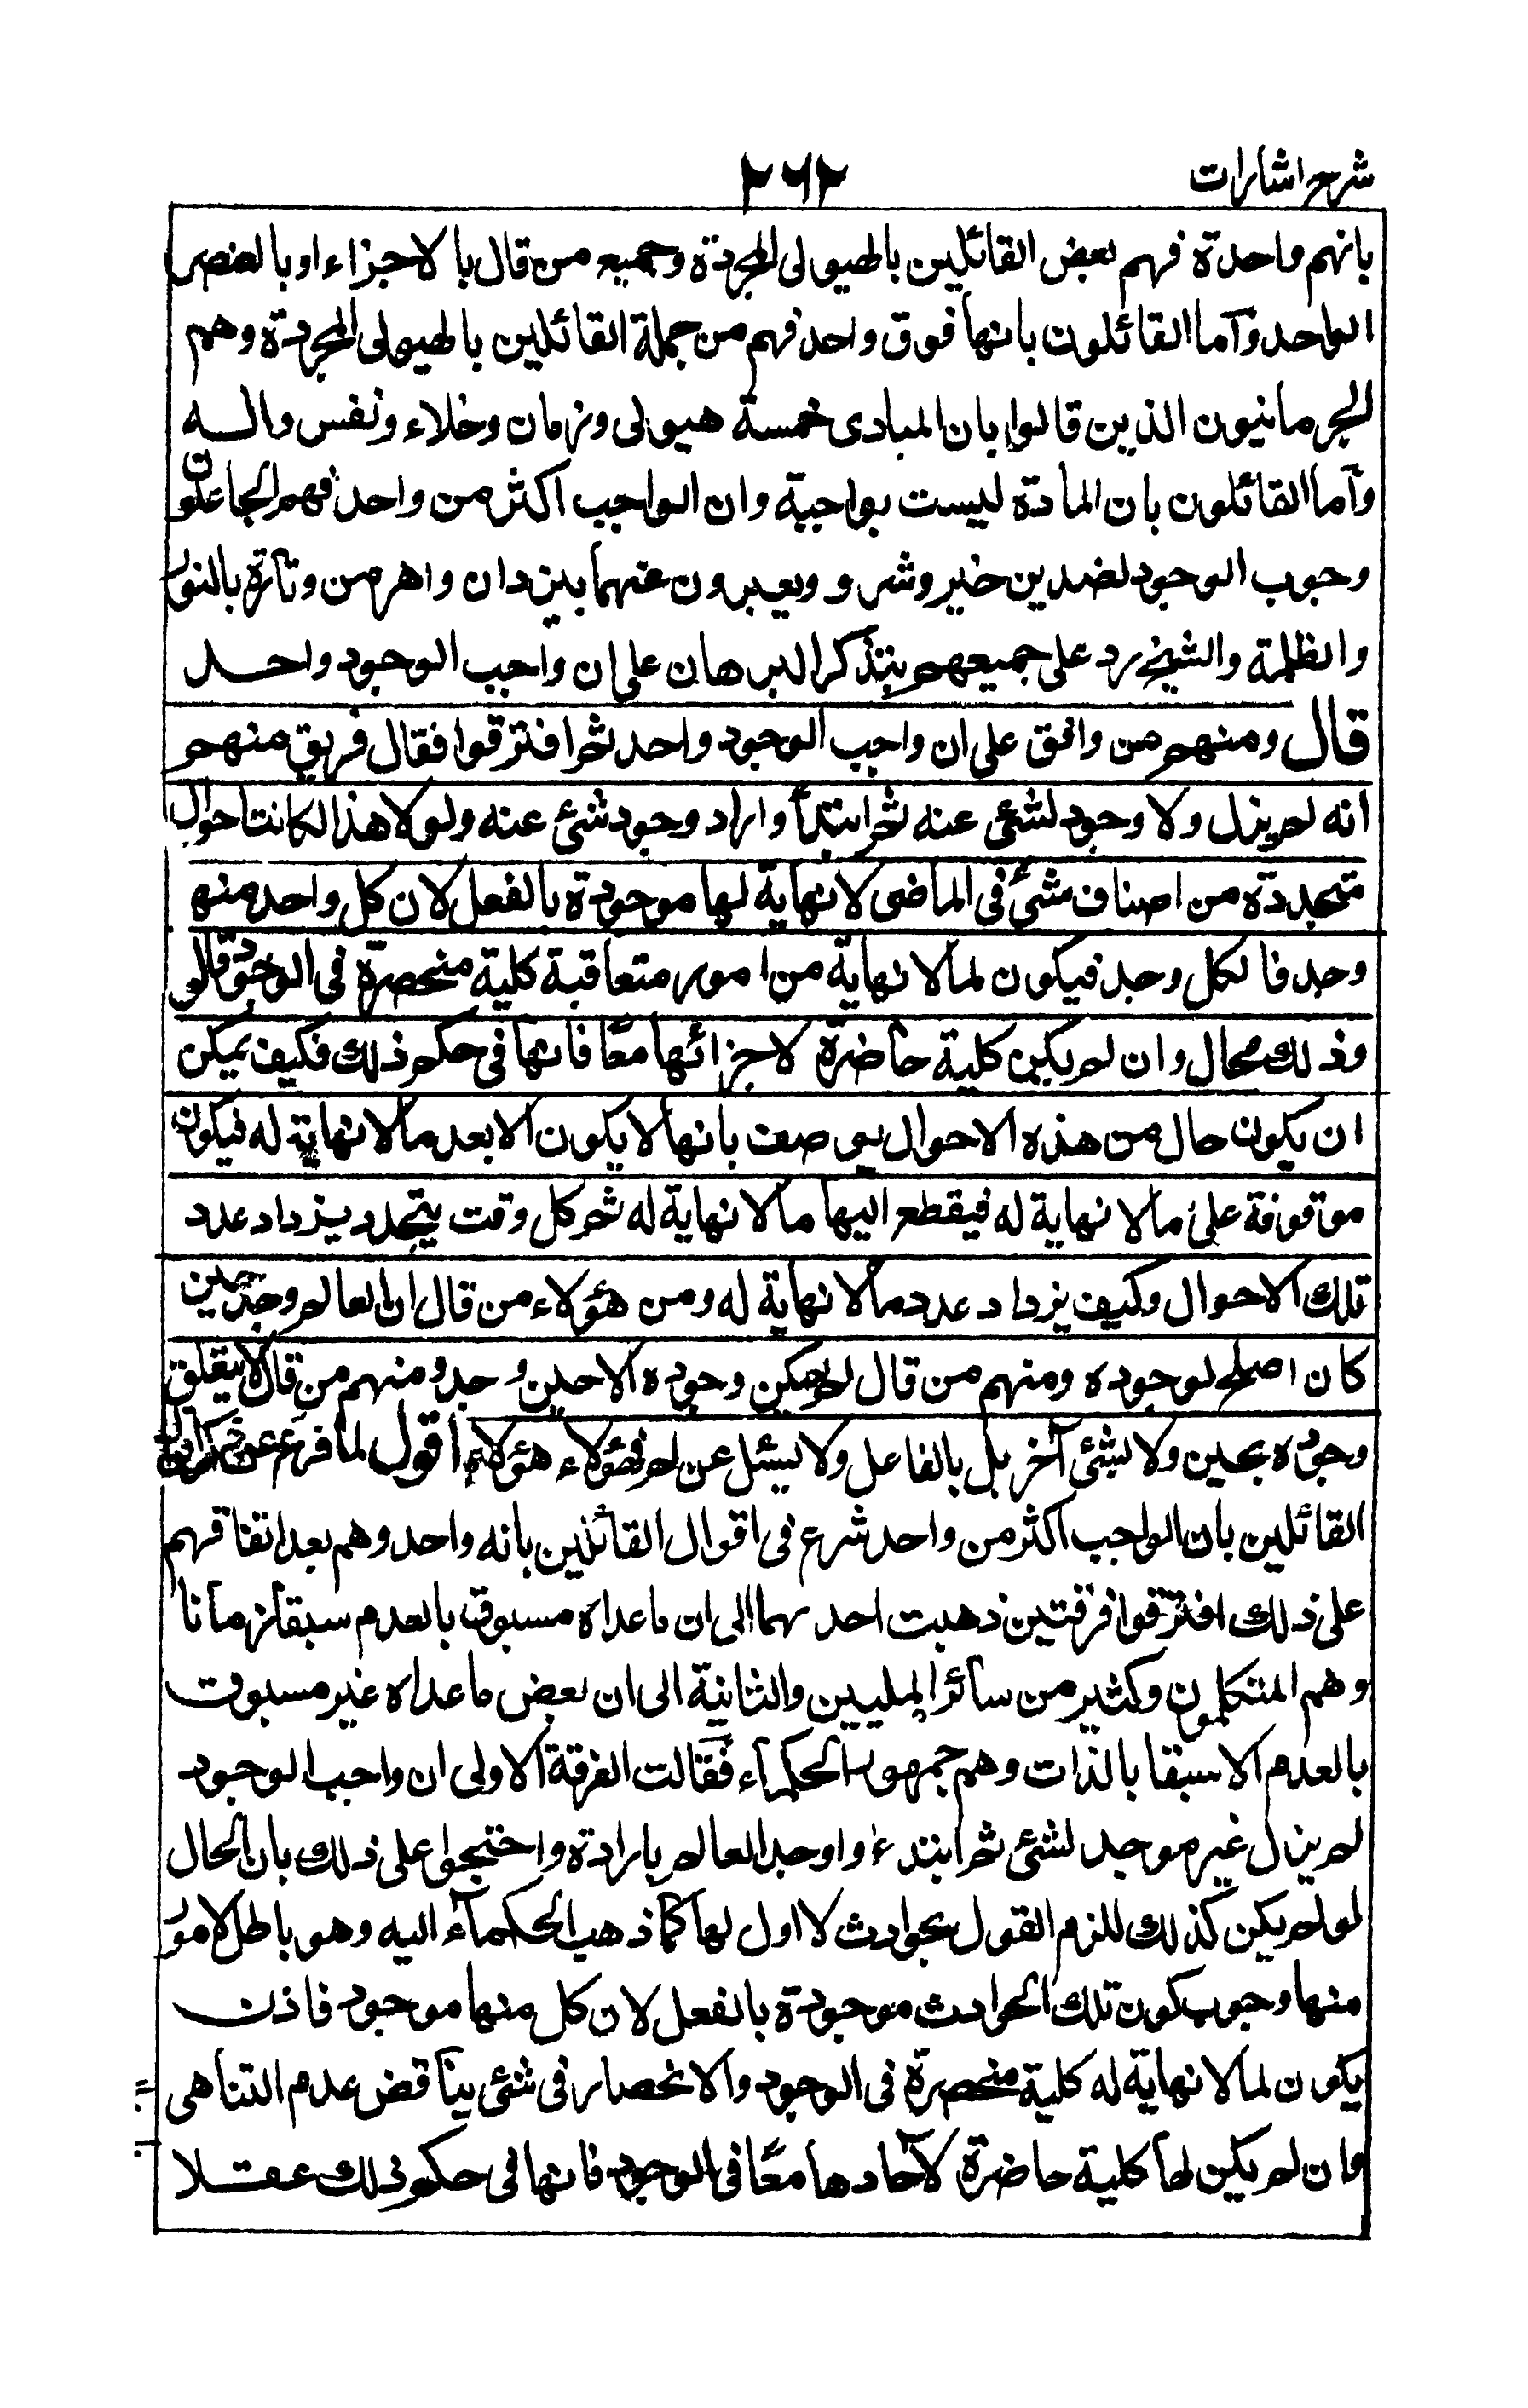 شرح اشارات
۲۶۲
بانهم واحدة فهم بعض القائلين بالهيولى المجردة وجميع من قال بالاجزاء او بالعنصر
الواحد وآما القائلون بانها فوق واحد فهم من جملة القائلين بالهيولى المجردة وهم
الحرمانيون الذين قالوا بان المبادى خمسة هيولى وزمان وخلاء ونفس واله
وآما القائلون بان المادة ليست بواجبة وان الواجب اكثر من واحد فهم الجاعلون
وجوب الوجود لضدين خير وشر و ويعبرون عنهما بيزدان واهرمن وتارة بالنور
والظلمة والشيخ رد على جميعهم بتذكر البرهان على ان واجب الوجود واحد
قال ومنهم من وافق على ان واجب الوجود واحد ثم افترقوا فقال فريق منهم
انه لم يزل ولا وجود لشئ عنه ثم ابتدأ واراد وجود شئ عنه ولولا هذا لكانت احوال
متجددة من اصناف شئ فى الماضى لا نهاية لها موجودة بالفعل لان كل واحد منها
وجد فالكل وجد فيكون لما لا نهاية من امور متعاقبة كلية منحصرة فى الوجود قالوا
وذلك محال وان لم يكن كلية حاضرة لاجزائها معًا فانها فى حكم ذلك فكيف يمكن
ان يكون حال من هذه الاحوال يوصف بانها لا يكون الا بعد ما لا نهاية له فيكون
موقوفة على ما لا نهاية له فيقطع اليها ما لا نهاية له ثم كل وقت يتجدد يزداد عدد
تلك الاحوال وكيف يزداد عدد ما لا نهاية له ومن هؤلاء من قال ان العالم وجد حين
كان اصلح لوجوده ومنهم من قال لم يمكن وجوده الا حين وجد ومنهم من قال لا يتعلق
وجوده بحين ولا بشئ آخر بل بالفاعل ولا يسئل عن لم فهؤلاء هؤلاء اقول لما فرغ عن
القائلين بان الواجب اكثر من واحد شرع فى اقوال القائلين بانه واحد وهم بعد اتفاقهم
على ذلك افترقوا فرقتين ذهبت احدهما الى ان ما عداه مسبوق بالعدم سبقا زمانا
وهم المتكلمون وكثير من سائر المليين والثانية الى ان بعض ما عداه غير مسبوق
بالعدم الا سبقا بالذات وهم جمهور الحكمآء فقالت الفرقة الاولى ان واجب الوجود
لم يزل غير موجد لشئ ثم ابتدء واوجد العالم بارادة واحتجوا على ذلك بان الحال
لو لم يكن كذلك للزم القول بحوادث لا اول لها كما ذهب الحكمآء اليه وهو باطل لامور
منها وجوب كون تلك الحوادث موجودة بالفعل لان كل منها موجود فاذن
يكون لما لا نهاية له كلية منحصرة فى الوجود والانحصار فى شئ يناقض عدم التناهى
وان لم يكن لها كلية حاضرة لآحادها معًا فى الوجود فانها فى حكم ذلك عقلا